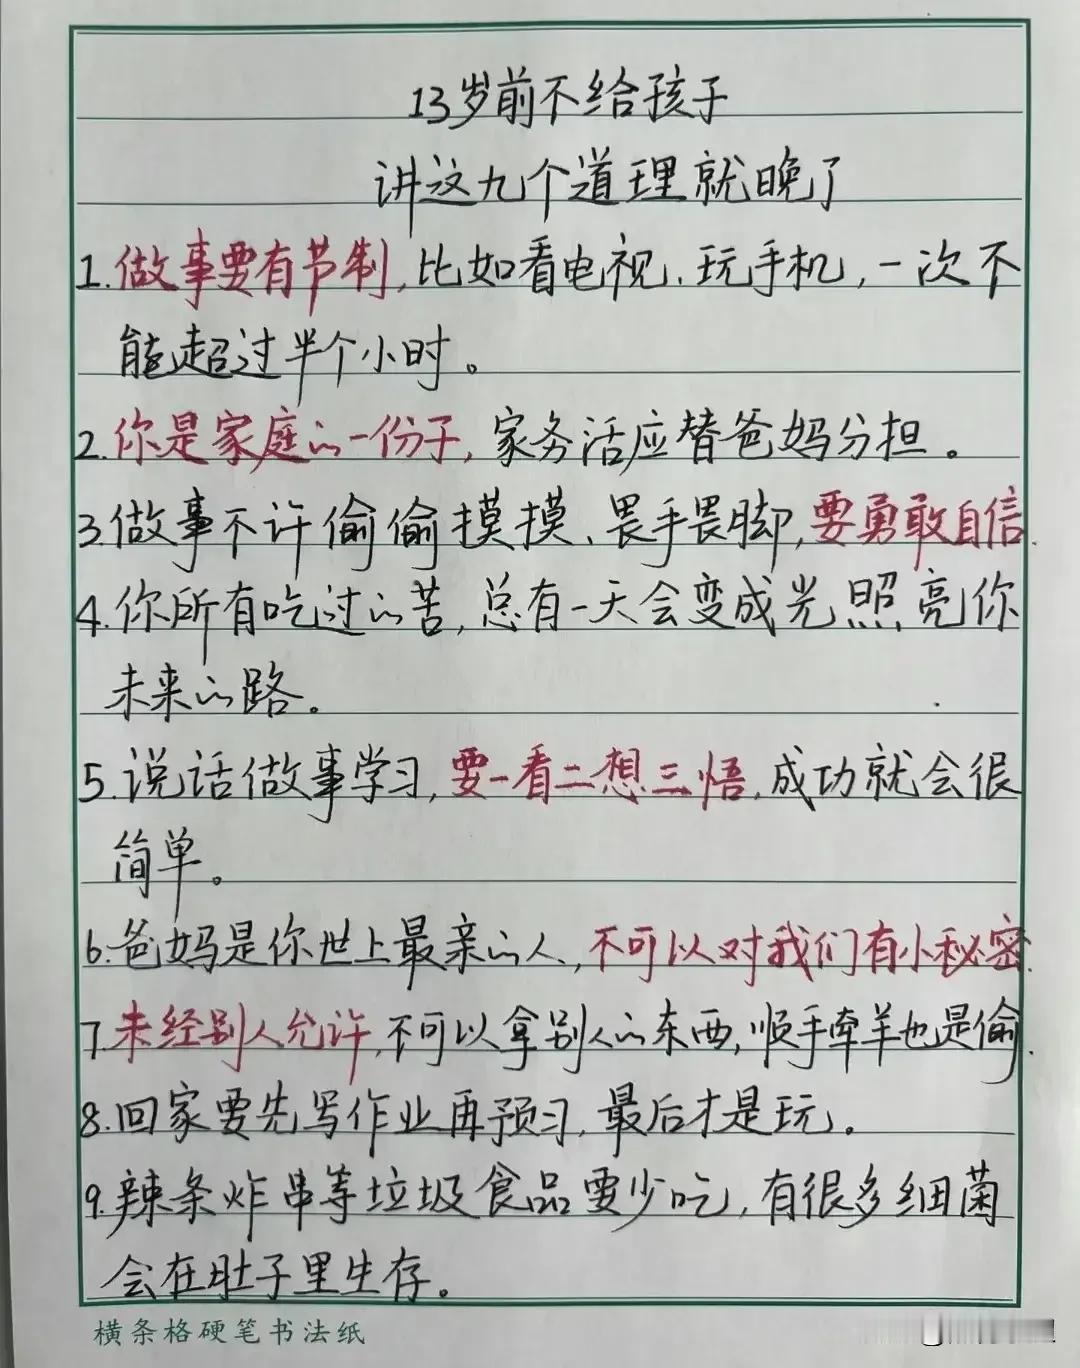 13岁前不给孩子
讲这九个道理就晚了
1.做事要有节制,比如看电视、玩手机,一次不
能超过半个小时。
2.你是家庭的一份子,家务活应替爸妈分担。
3.做事不许偷偷摸摸、畏手畏脚,要勇敢自信.
4.你所有吃过的苦,总有一天会变成光照亮你
未来的路。
5.说话做事学习,要一看二想三悟,成功就会很
简单。
6.爸妈是你世上最亲的人,不可以对我们有小秘密.
7.未经别人允许,不可以拿别人的东西,顺手牵羊也是偷.
8.回家要先写作业再预习,最后才是玩。
9.辣条炸串等垃圾食品要少吃,有很多细菌
会在肚子里生存。
横条格硬笔书法纸